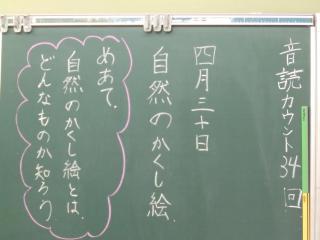 音読カウント34回
四月三十日
自然のかくし絵
めあて
自然のかくし絵とは、
どんなものか知ろう